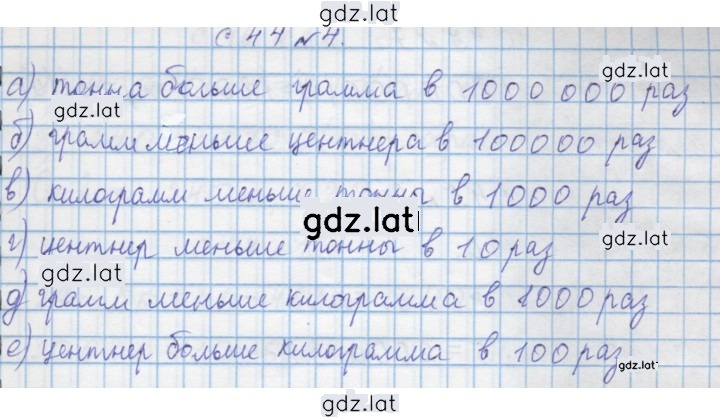 gdz.lat
с 44 № 4.
gdz.lat
а) тонна больше грамма в 1000 000 раз
gdz.lat
gdz.lat
б) грамм меньше центнера в 100000 раз
в) килограмм меньше тонны в 1000 раз
gdz.lat
gdz.lat
г) центнер меньше тонны в 10 раз
gdz.lat
д) грамм меньше килограмма в 1000 раз
е) центнер больше килограмма в 100 раз
gdz.lat
gdz.lat